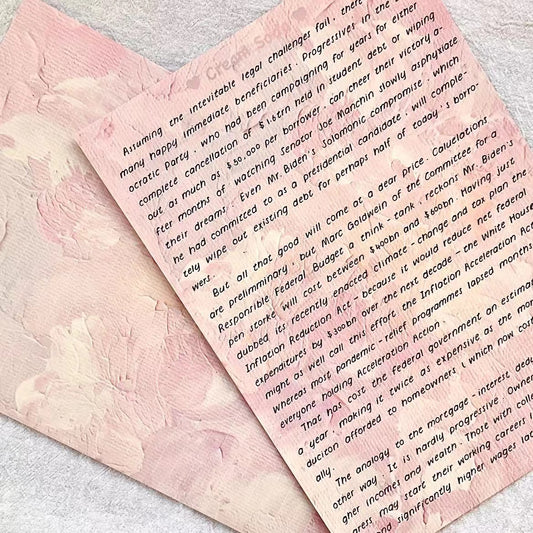 Cream Soda
Assuming the inevitable legal challenges fail, there
many happy immediate beneficiaries. Progressives in the
ocratic Party, who had been campaigning for years for either
complete cancellation of $1.6trn held in student debt or wiping
out as much as $50,000 per borrower, can cheer their victory a-
fter months of watching Senator Joe Manchin slowly asphyxiate
their dreams. Even Mr. Biden's Solomonic compromise, which
he had committed to as a presidential candidate, will comple-
tely wipe out existing debt for perhaps half of today's borro-
wers.
But all that good will come at a dear price. Caluclations
are prelimminary, but Marc Goldwein of the Committee for a
Responsible Federal Budget a think-tank, reckons Mr. Biden's
pen storke will cost between $400bn and $600bn. Having just
dubbed its recently enacted climate-change and tax plan the
Inflation Reduction Act-because it would reduce net federal
expenditures by $300bn over the next decade-the White House
might as well call this effort the Inflation Acceleration Act
whereas most pandemic-relief programmes lapsed months
everyone holding Acceleration Action.
That has cost the federal government an estimat
a year, making it twice as expensive as the mor
duciton afforded to homeowners, which now cost
ally.
The analogy to the mortgage-interest dedu
other way. It is hardly progressive. Owner
gher incomes and wealth. Those with colle
gress may start their working careers i
and significantly higher wages lat